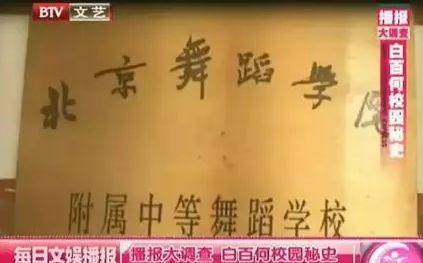 BTV 文艺
播报
大调查
白百何校园秘史
北京舞蹈学院
附属中等舞蹈学校
每日文娱播报
播报大调查 白百何校园秘史